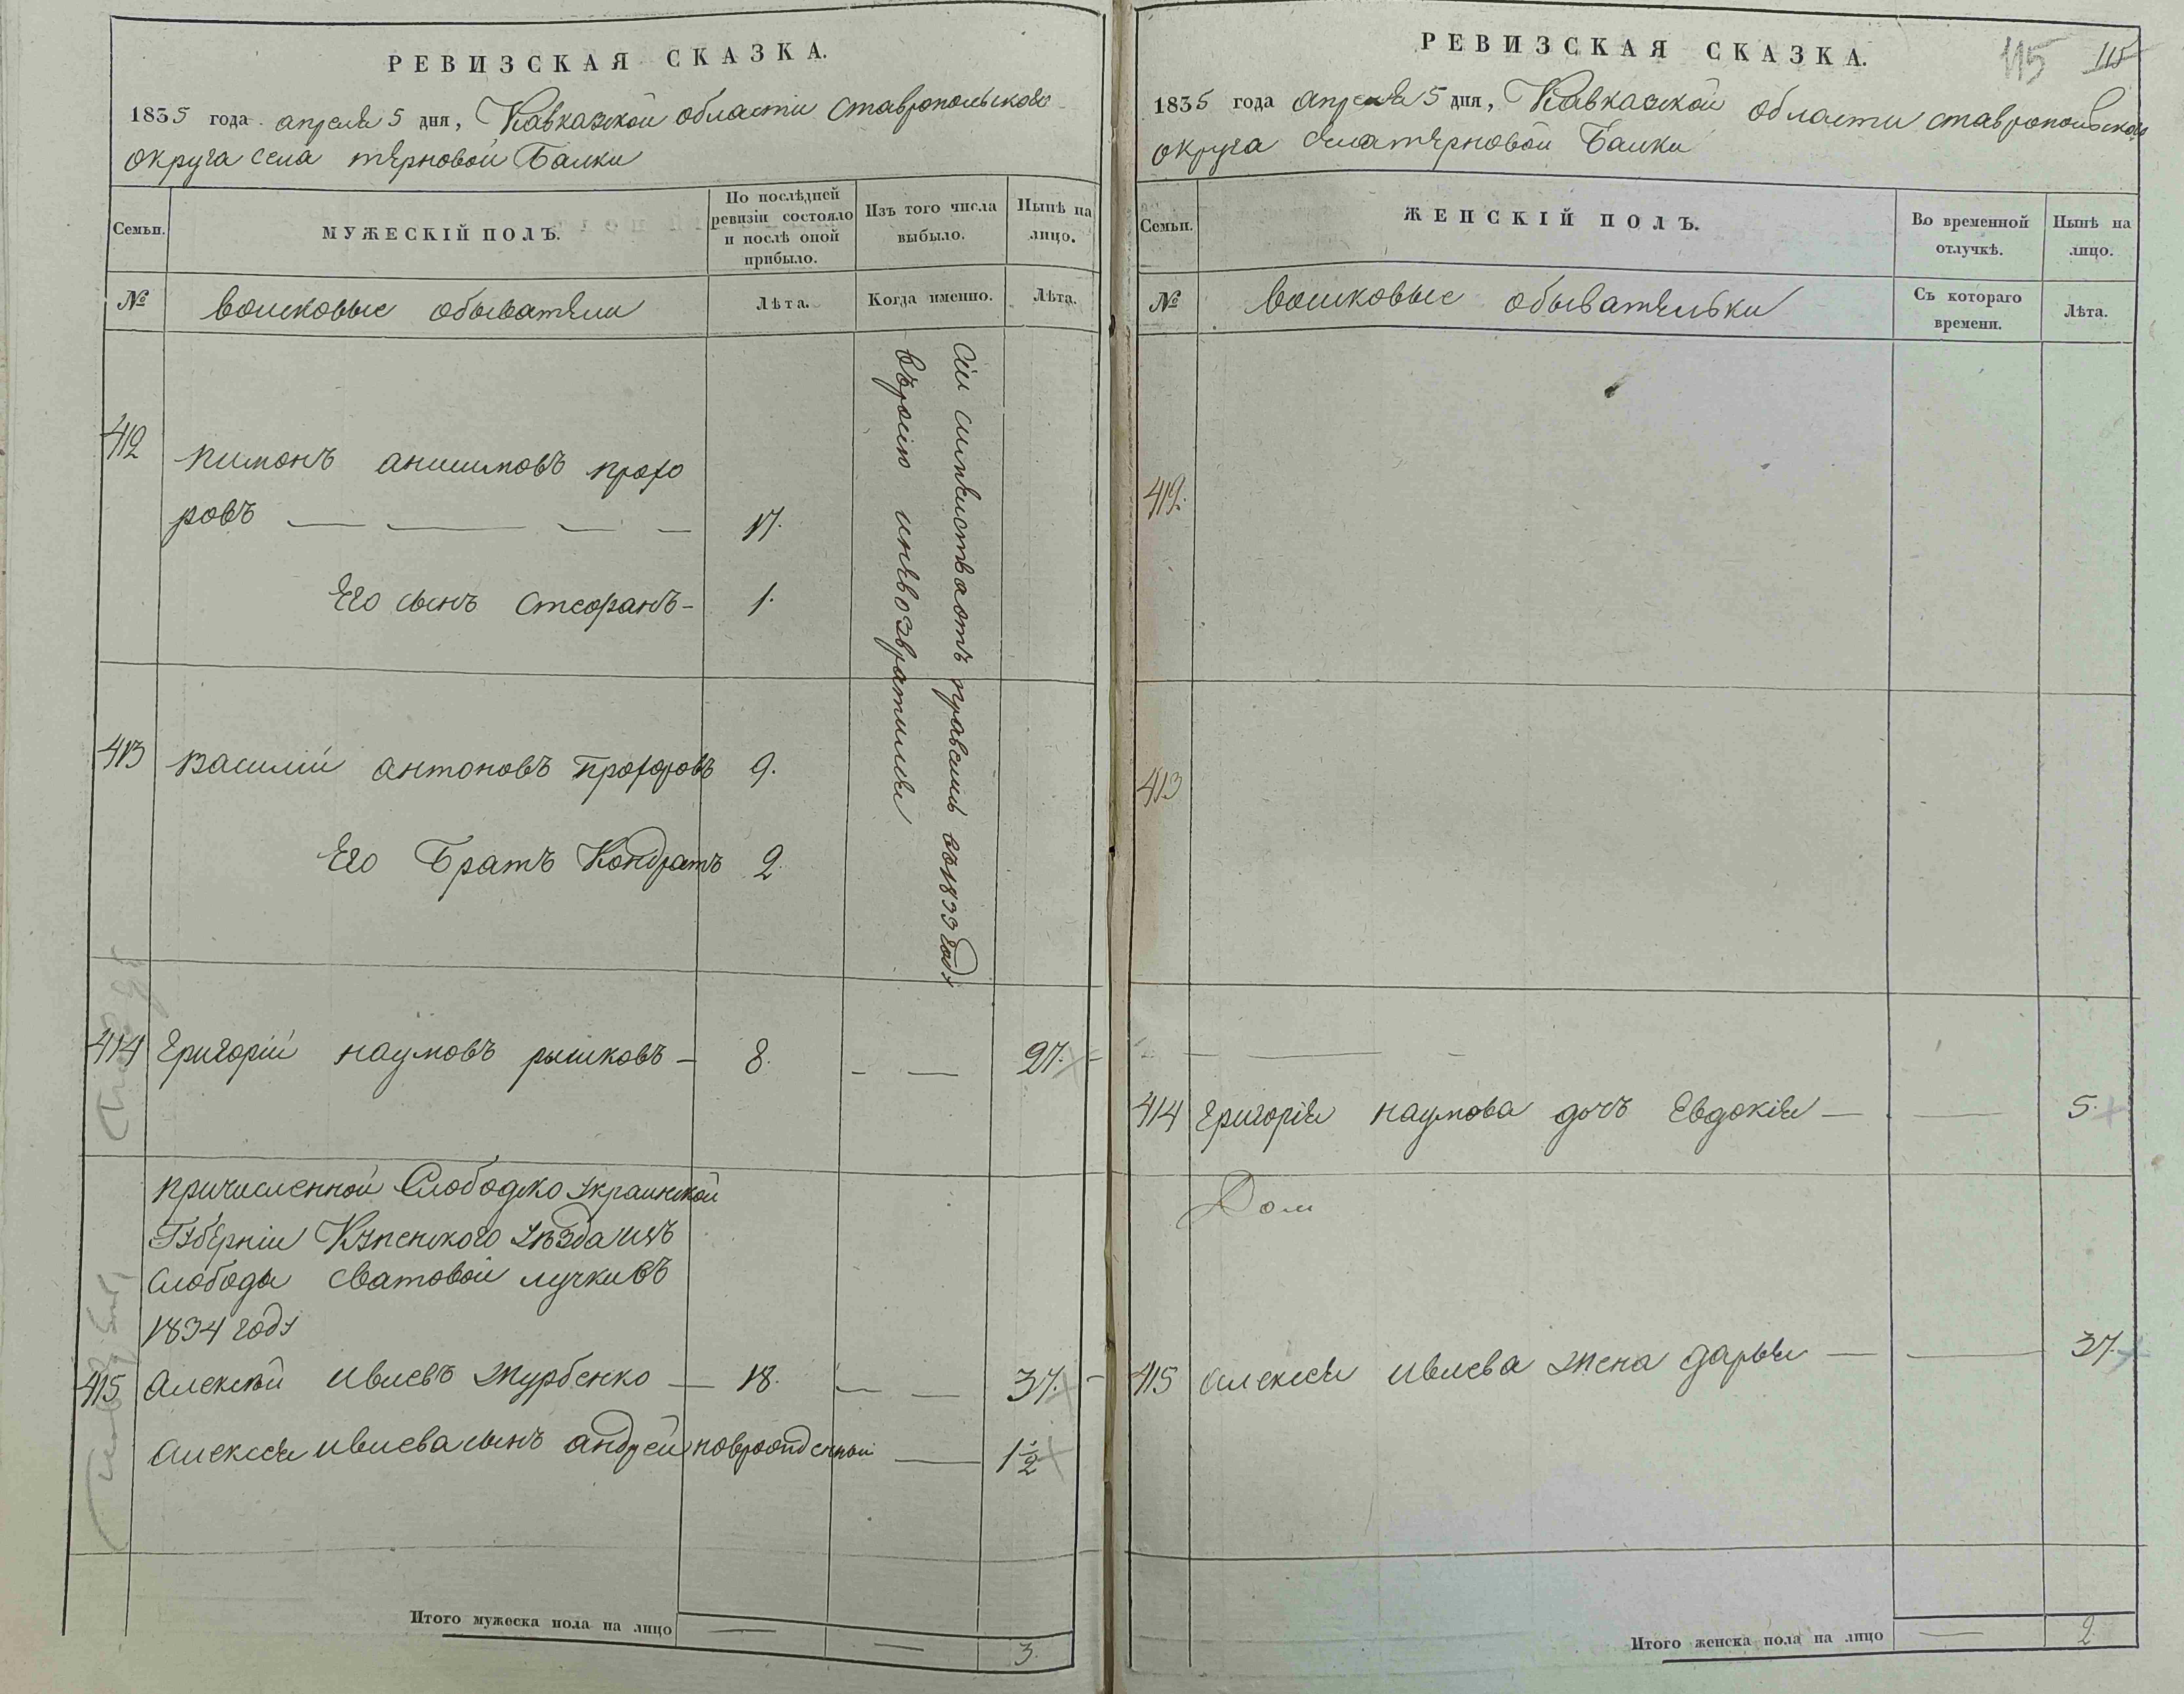 РЕВИЗСКАЯ СКАЗКА.
1835 года апреля 5 дня, Кавказской области ставропольского
округа села терновой Балки
Семьи.
МУЖЕСКІЙ ПОЛЪ.
По послѣдней ревизіи состояло и послѣ оной прибыло.
Изъ того числа выбыло.
Нынѣ на лицо.
№
воисковые обыватели
Лѣта.
Когда именно.
Лѣта.
412
пимонъ анисимовъ прохо
ровъ — 17.
Его сынъ стефанъ - 1.
413 василіи антоновъ Прохоровъ 9.
Его Братъ Кондратъ 2.
сіи отъ въ 1833 году
въ росію иневозвратились
414 григоріи наумовъ рышковъ - 8. - — 27. -
причисленной Слободско украинской
Губерніи Купенского уѣзда изъ
слободы сватовой лучки въ
1834 году
415 алексѣи ивлевъ журбенко — 18. — — 37. -
алексея ивлева сынъ андреи новрожденныи — 1 1/2
Итого мужеска пола на лицо — — 3.
РЕВИЗСКАЯ СКАЗКА.
115 115
1835 года апреля 5 дня, Кавказской области ставропольского
округа села терновой Балки
Семьи.
ЖЕНСКІЙ ПОЛЪ.
Во временной отлучкѣ.
Нынѣ на лицо.
№
воисковые обывательки
Съ котораго времени.
Лѣта.
412.
413
- — -
414 григорія наумова дочъ Евдокія — — 5.
415 алексея ивлева жена дарья — — 37.
Итого женска пола на лицо — 2